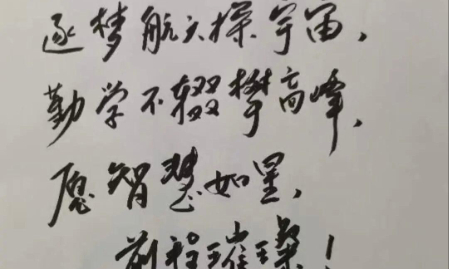 逐梦航天探宇宙，
勤学不辍攀高峰，
愿智慧如星，
前程璀璨！